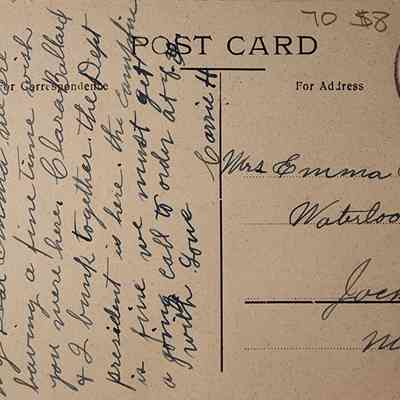 70 $8
POST CARD
For Correspondence
For Address
My Dear Emma we are
having a fine time wish
you were here. Clara Bullard
& I bunk together. the Dept
president is here. the
is fine we must get
a going call to order at 8.30
with love
Carrie H
Mrs Emma
Waterloo